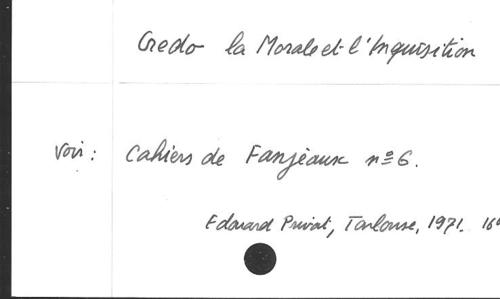 Credo la Morale et l'Inquisition
voir : Cahiers de Fanjeaux nº 6.
Edouard Privat, Toulouse, 1971. 16